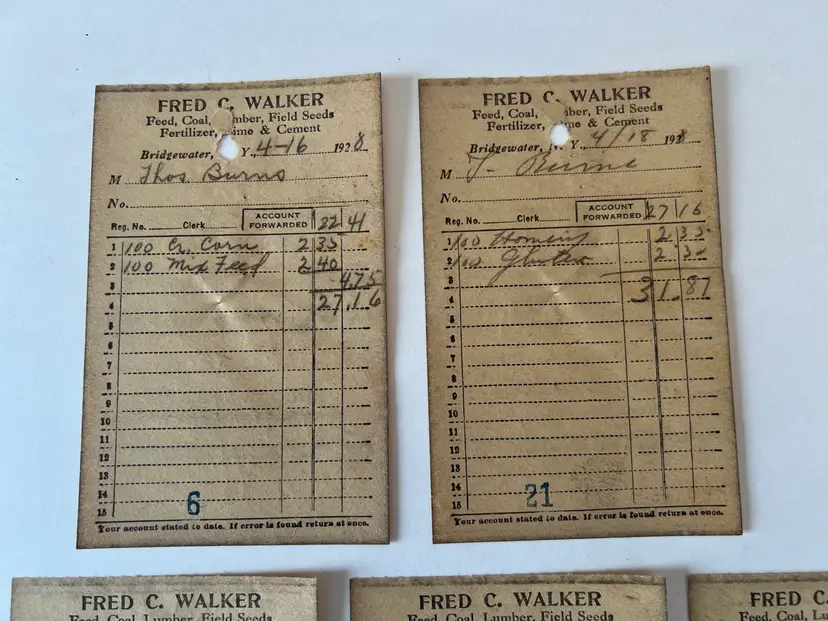 FRED C. WALKER
Feed, Coal, mber, Field Seeds
Fertilizer, ime & Cement
Bridgewater, Y., 4-16 1928
M Thos Burns
No.
Reg. No. Clerk ACCOUNT FORWARDED 22 41
1 100 Cr. Corn 2 35
2 100 Mix Feed 2 40
3 4.75
4 27.16
4
5
6
7
8
8
9
10
11
12
13
14
15
6
Your account stated to date. If error is found return at once.
FRED C. WALKER
Feed, Coal, mber, Field Seeds
Fertilizer, me & Cement
Bridgewater, N. Y., 4/18 1928
M T- Burns
No.
Reg. No. Clerk ACCOUNT FORWARDED 27 16
1 100 Hominy 2 35
2 100 Gluten 2
3
4 31.87
4
5
6
7
8
8
9
10
11
12
13
14
15
21
Your account stated to date. If error is found return at once.
FRED C. WALKER
Feed, Coal, Lumber, Field Seeds
FRED C. WALKER
Feed, Coal, Lumber, Field Seeds
FRED C.
Feed, Coal, Lu